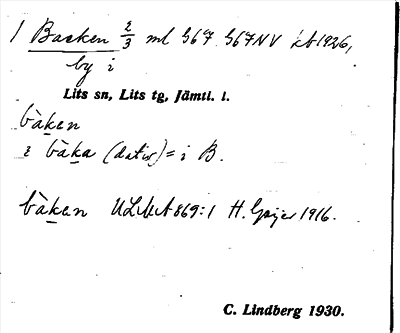 1 Backen 2/3 ml 367 367NV kb 1926,
by i
Lits sn, Lits tg, Jämtl. l.
bàken
i bàka (dativ) = i B.
bàken ULMA 869:1 H. Geijer 1916.
C. Lindberg 1930.